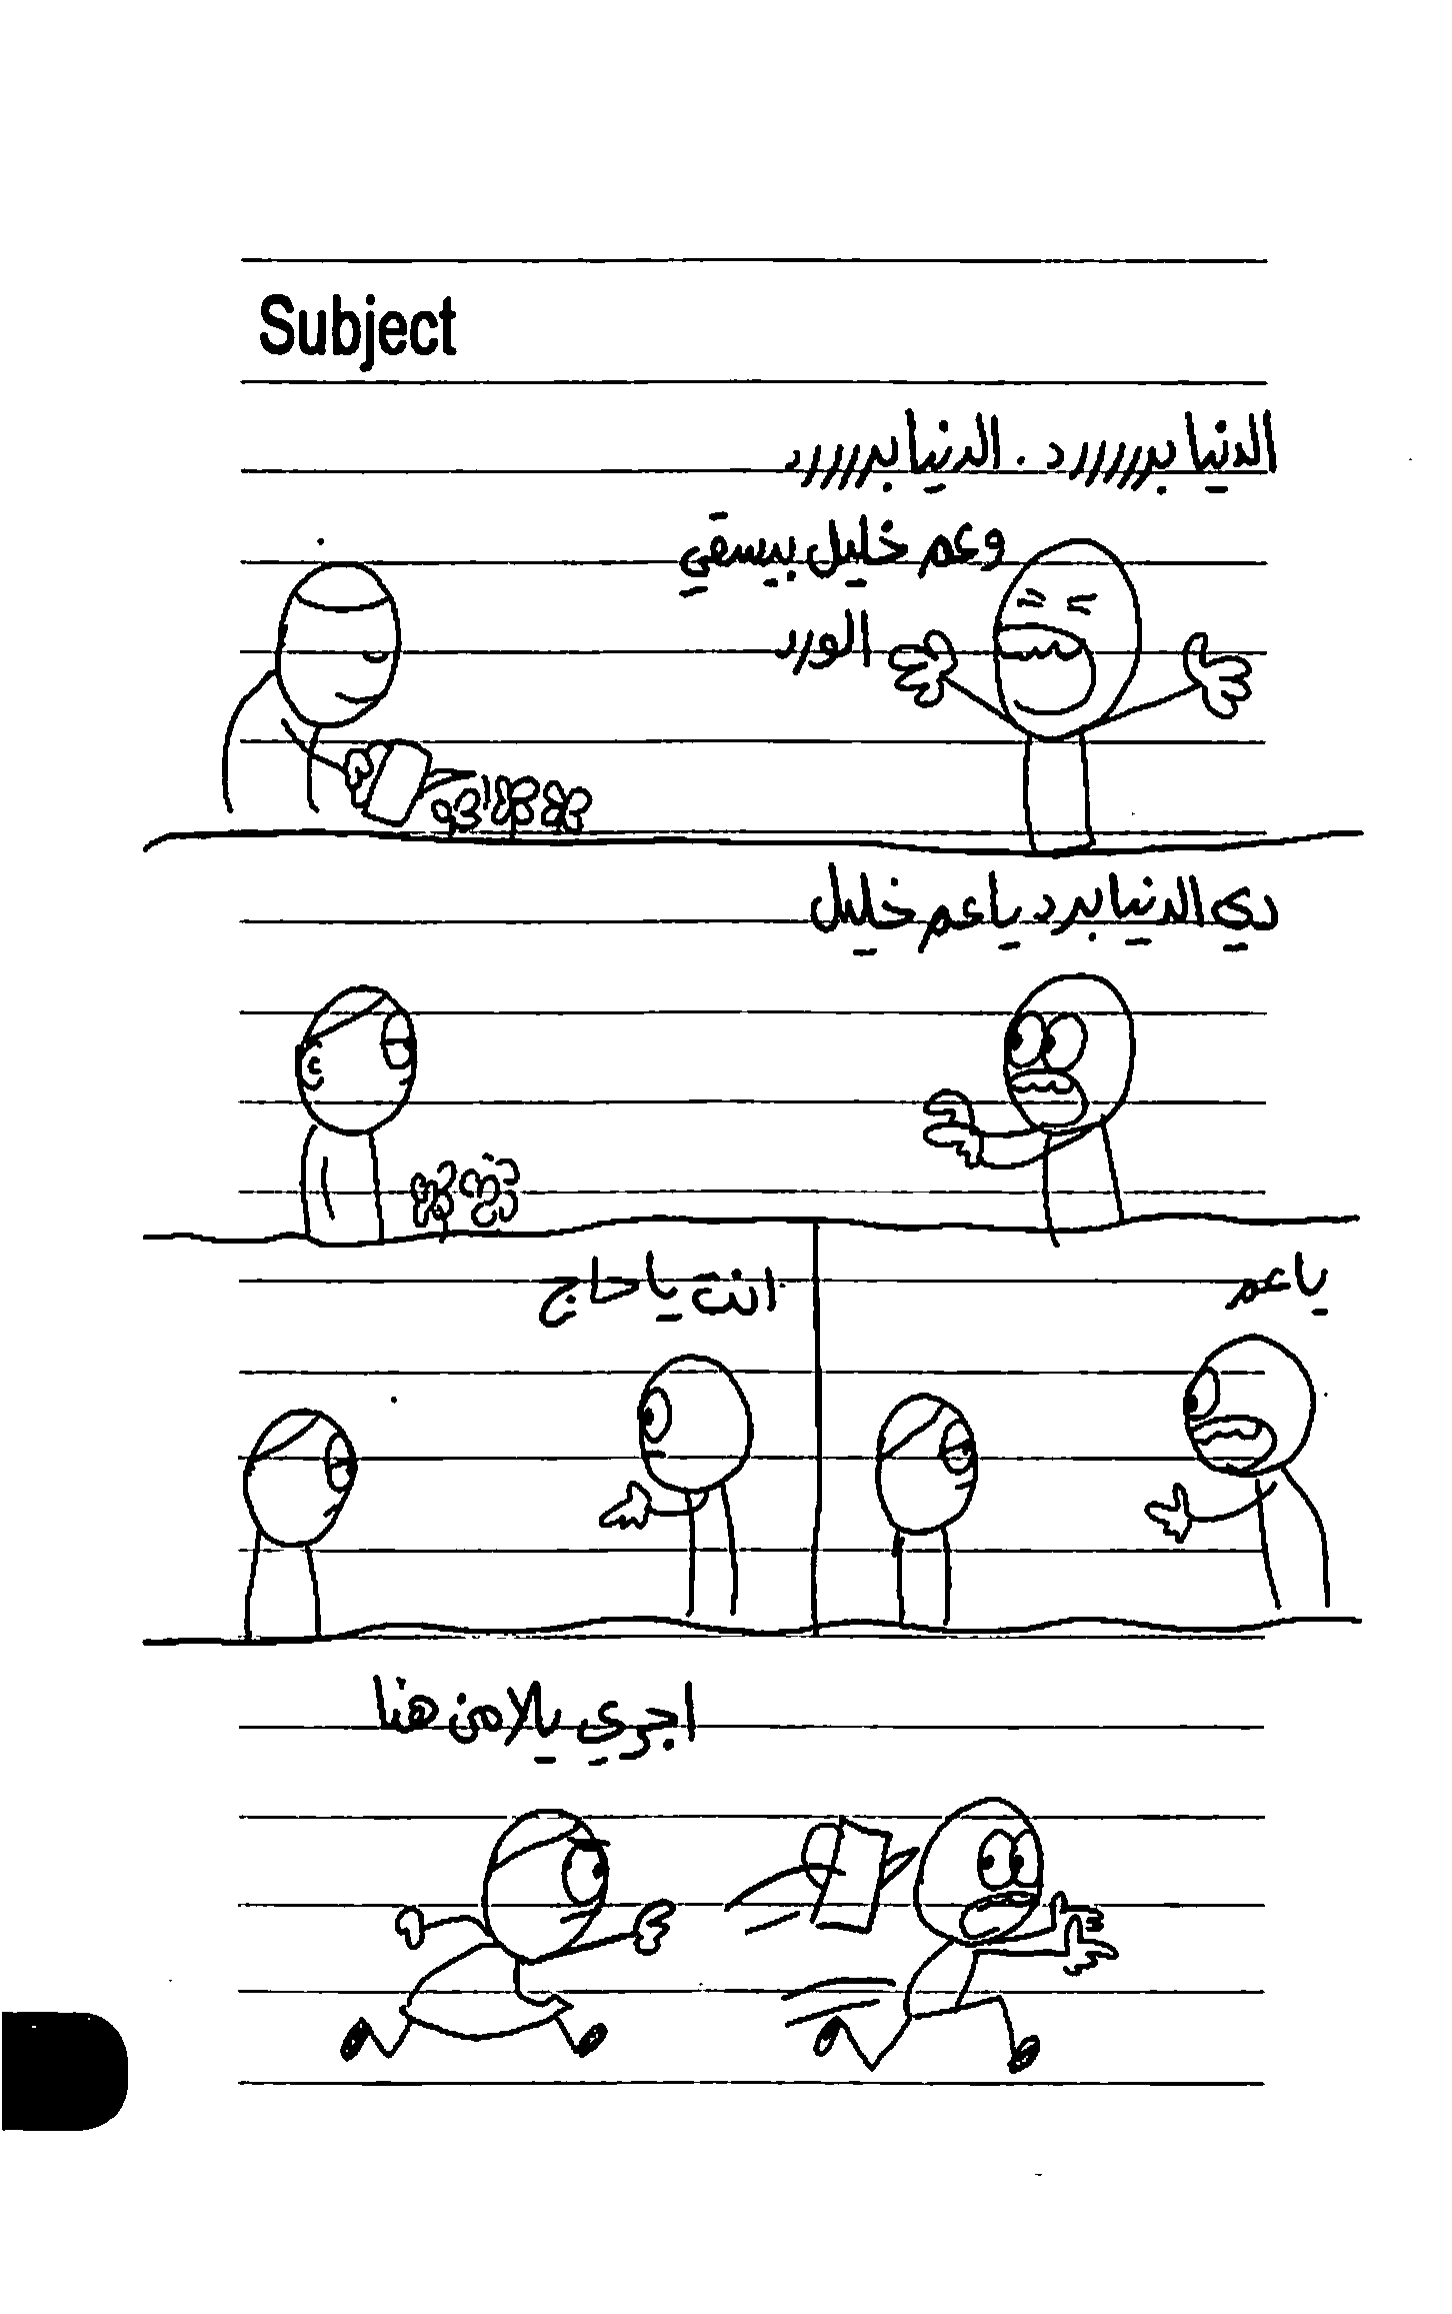 Subject
الدنيا بررررررد . الدنيا بررررررد
وعم خليل بيسقي
الورد
دي الدنيا برد يا عم خليل
يا عم
انت يا حاج
اجري يلا من هنا